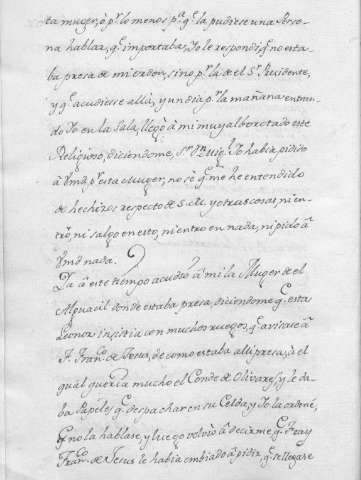 ta muger, ò pr. lo menos pa. q.e la pudiese una Perso-
na hablar, q.e importaba, Yo le respondi q.e no esta-
ba presa de mi orden, sino pr. la de el Sr. Presidente,
y q.e acudiese allà, y un dia pr. la mañana entran-
do Yo en la Sala, llegò à mi muy alborotado este
Religioso, diciendome, Sr. Dn. Luis, Yo habia pidido
à Vmd. pr. esta Muger, no sè q.e me he entendido
de hechizos respecto de S.M. y otras cosas, ni en-
trò, ni salgo en esto, ni entro en nada, ni pido à
Vmd nada.
Ya à este tiempo acudiò à mi la Muger de el
Alguacil donde estaba presa, diciendome q.e esta
Leonor insistia con muchos ruegos, q.e avisase à
F. Franc.o de Jesus, de como estaba alli presa, à el
qual queria mucho el Conde de Olivares, y le da-
ba Papeles q.e despachar en su Celda, y Yo la ordenè,
q.e no la hablase, y luego volviò à decirme q.e Fray
Franc.o de Jesus le habia embiado à pidir, q.e se llegase